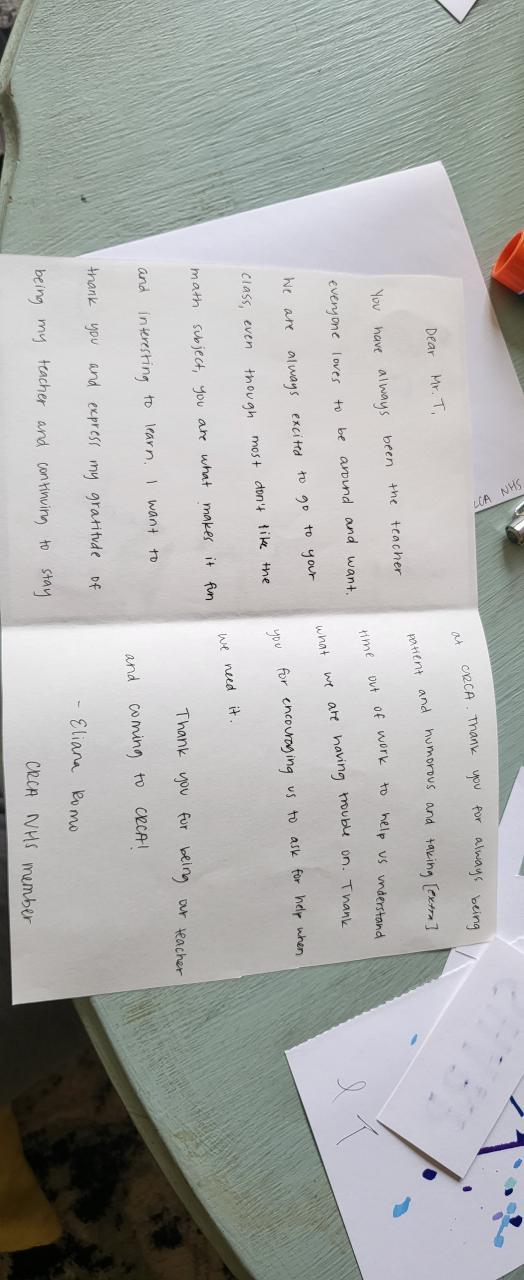 Dear Mr. T,
You have always been the teacher
everyone loves to be around and want.
We are always excited to go to your
class, even though most don't like the
math subject, you are what makes it fun
and interesting to learn. I want to
thank you and express my gratitude of
being my teacher and continuing to stay
at CRCA. Thank you for always being
patient and humorous and taking [extra]
time out of work to help us understand
what we are having trouble on. Thank
you for encouraging us to ask for help when
we need it.
Thank you for being our teacher
and coming to CRCA!
- Eliana Romo
CRCA NHS member
CA NHS